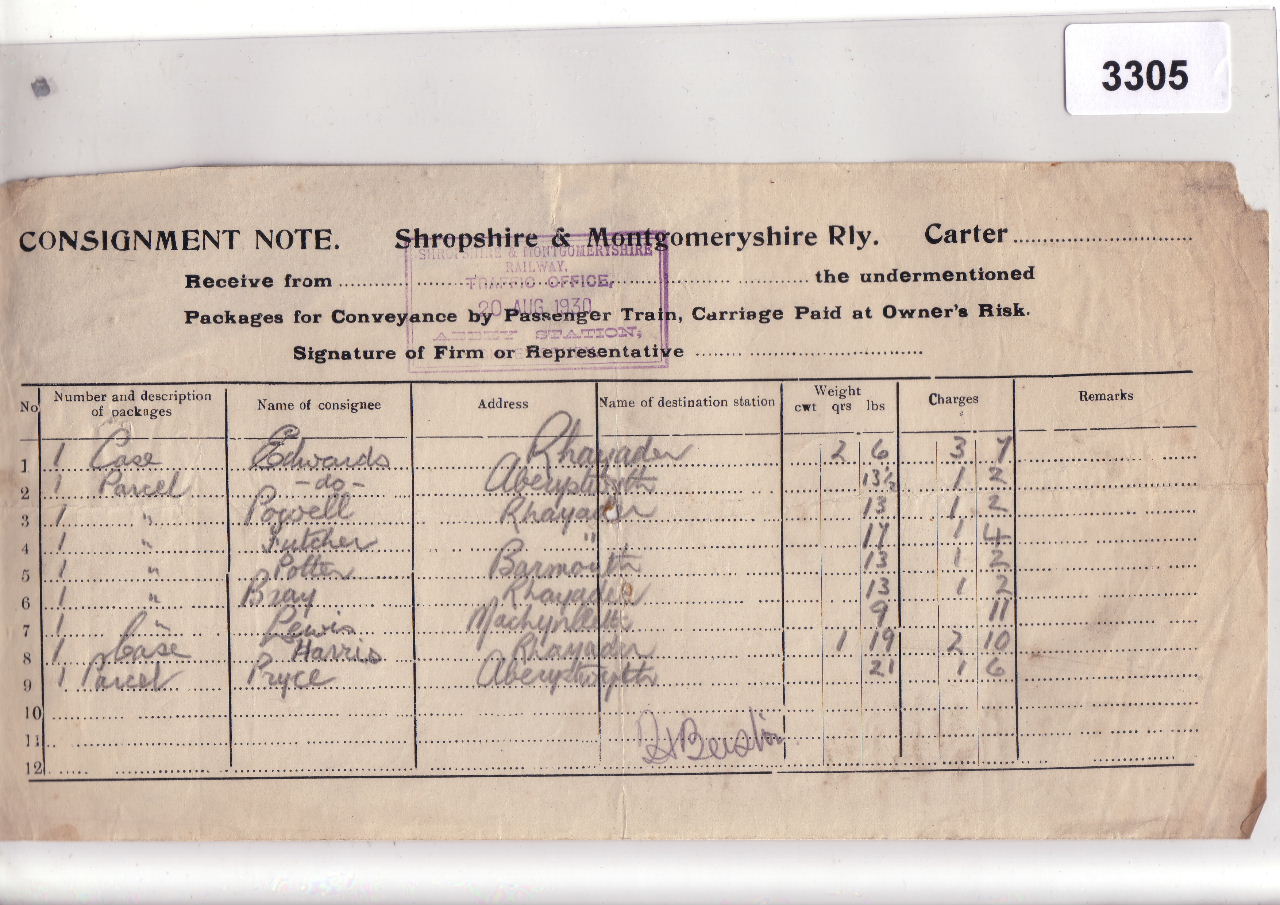 3305
CONSIGNMENT NOTE. Shropshire & Montgomeryshire Rly. Carter
SHROPSHIRE & MONTGOMERYSHIRE
RAILWAY.
Receive from the undermentioned
TRAFFIC OFFICE,
20 AUG 1930
Packages for Conveyance by Passenger Train, Carriage Paid at Owner's Risk.
ABBEY STATION,
Signature of Firm or Representative
No Number and description of packages Name of consignee Address Name of destination station Weight cwt qrs lbs Charges Remarks
1 1 Case Edwards Rhayader 2 6 3 7
2 1 Parcel -do- Aberystwyth 13½ 1 2
3 1 " Powell Rhayader 13 1 2
4 1 " Futcher " 17 1 4
5 1 " Potter Barmouth 13 1 2
6 1 " Bray Rhayader 13 1 2
7 1 " Lewis Machynlleth 9 11
8 1 Case Harris Rhayader 1 19 2 10
9 1 Parcel Pryce Aberystwyth 21 1 6
10
11
12